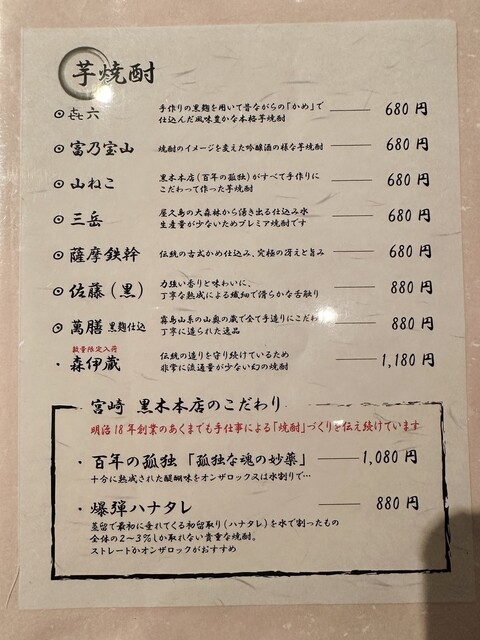 芋焼酎
㐂六 手作りの黒麹を用いて昔ながらの「かめ」で 680円
仕込んだ風味豊かな本格芋焼酎
富乃宝山 焼酎のイメージを変えた吟醸酒の様な芋焼酎 680円
山ねこ 黒木本店(百年の孤独)がすべて手作りに 680円
こだわって作った芋焼酎
三岳 屋久島の大森林から湧き出る仕込み水 680円
生産量が少ないためプレミア焼酎です
薩摩鉄幹 伝統の古式かめ仕込み、究極の冴えと旨み 680円
佐藤(黒) 力強い香りと味わいに、 880円
丁寧な熟成による繊細で滑らかな舌触り
萬膳 黒麹仕込 霧島山系の山奥の蔵で全て手造りにこだわ 880円
丁寧に造られた逸品
数量限定入荷
・森伊蔵 伝統の造りを守り続けているため 1,180円
非常に流通量が少ない幻の焼酎
宮崎 黒木本店のこだわり
明治18年創業のあくまでも手仕事による「焼酎」づくりを伝え続けています
・百年の孤独「孤独な魂の妙薬」 1,080円
十分に熟成された醍醐味をオンザロック又は水割りで…
・爆弾ハナタレ 880円
蒸留で最初に垂れてくる初留取り(ハナタレ)を水で割ったもの
全体の2〜3%しか取れない貴重な焼酎。
ストレートかオンザロックがおすすめ